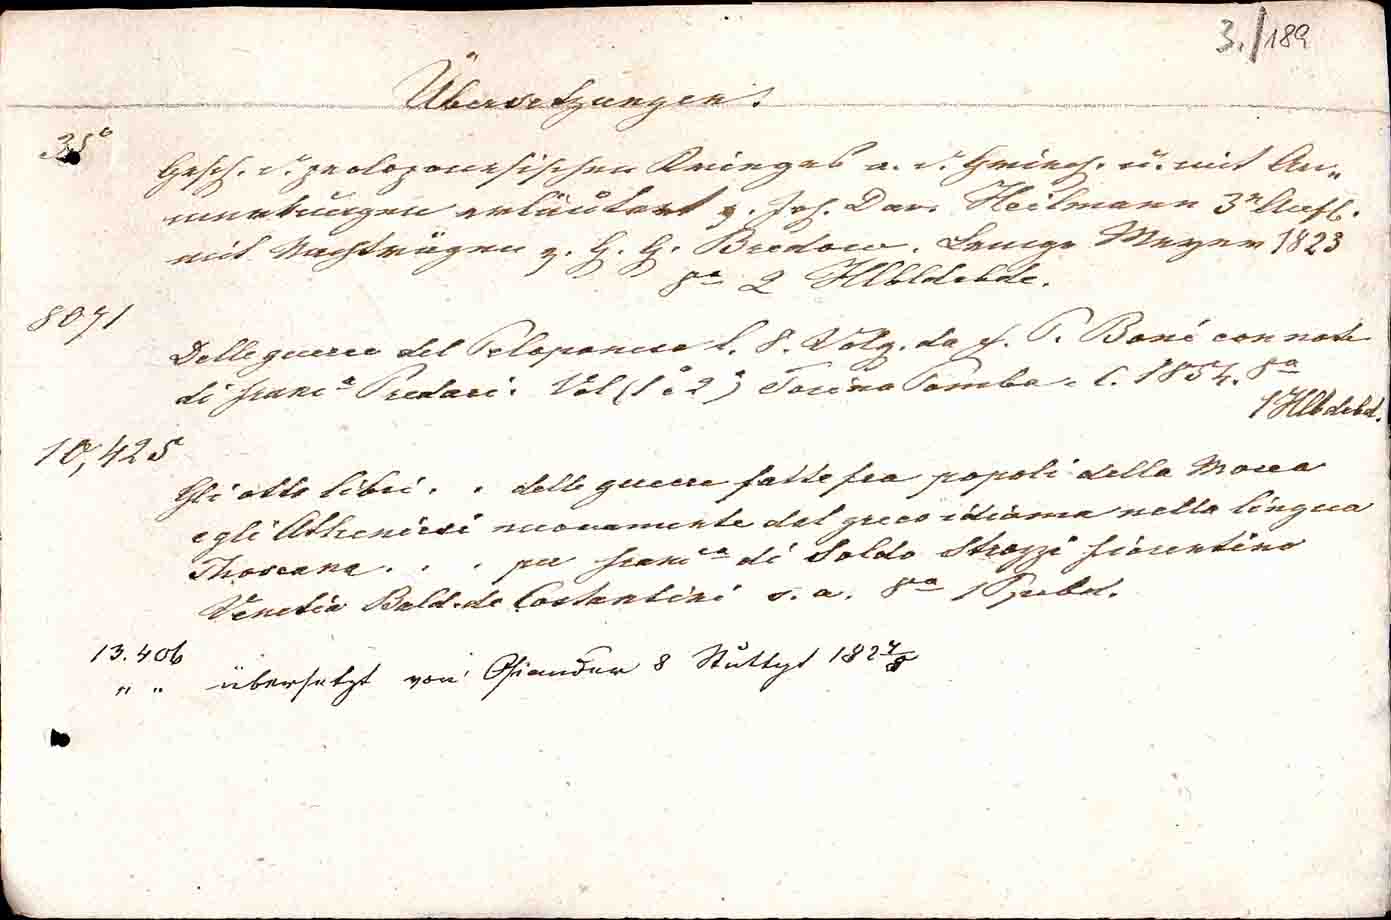 3./189
Übersetzungen.
35
Gesch. d. peloponnesischen Krieges a. d. Griech. u. mit An-
merkungen erläutert v. Joh. Dav. Heilmann 3e Aufl.
mit Nachträgen v. G. G. Bredow. Lemgo Meyer 1823
8° 2 Hlbldrbde.
8071
Delle guerre del Peloponneso l. 8. Volg. da P. Boni con note
di Franc° Predari. Vol (1° e 2°) Torino Pomba e C. 1854. 8°
1 Hlbldrbd.
10,425
Gli otto libri . . delle guerre fatte fra popoli della Morea
e gli Atheniesi nuovamente dal greco idioma nella lingua
Thoscana . . . per Franc° di Soldo Strozzi fiorentino
Venetia Bald. de Costantini s. a. 8° 1 Ppbd.
13.406
" " übersetzt von Osiander 8 Stuttgt 1827/8